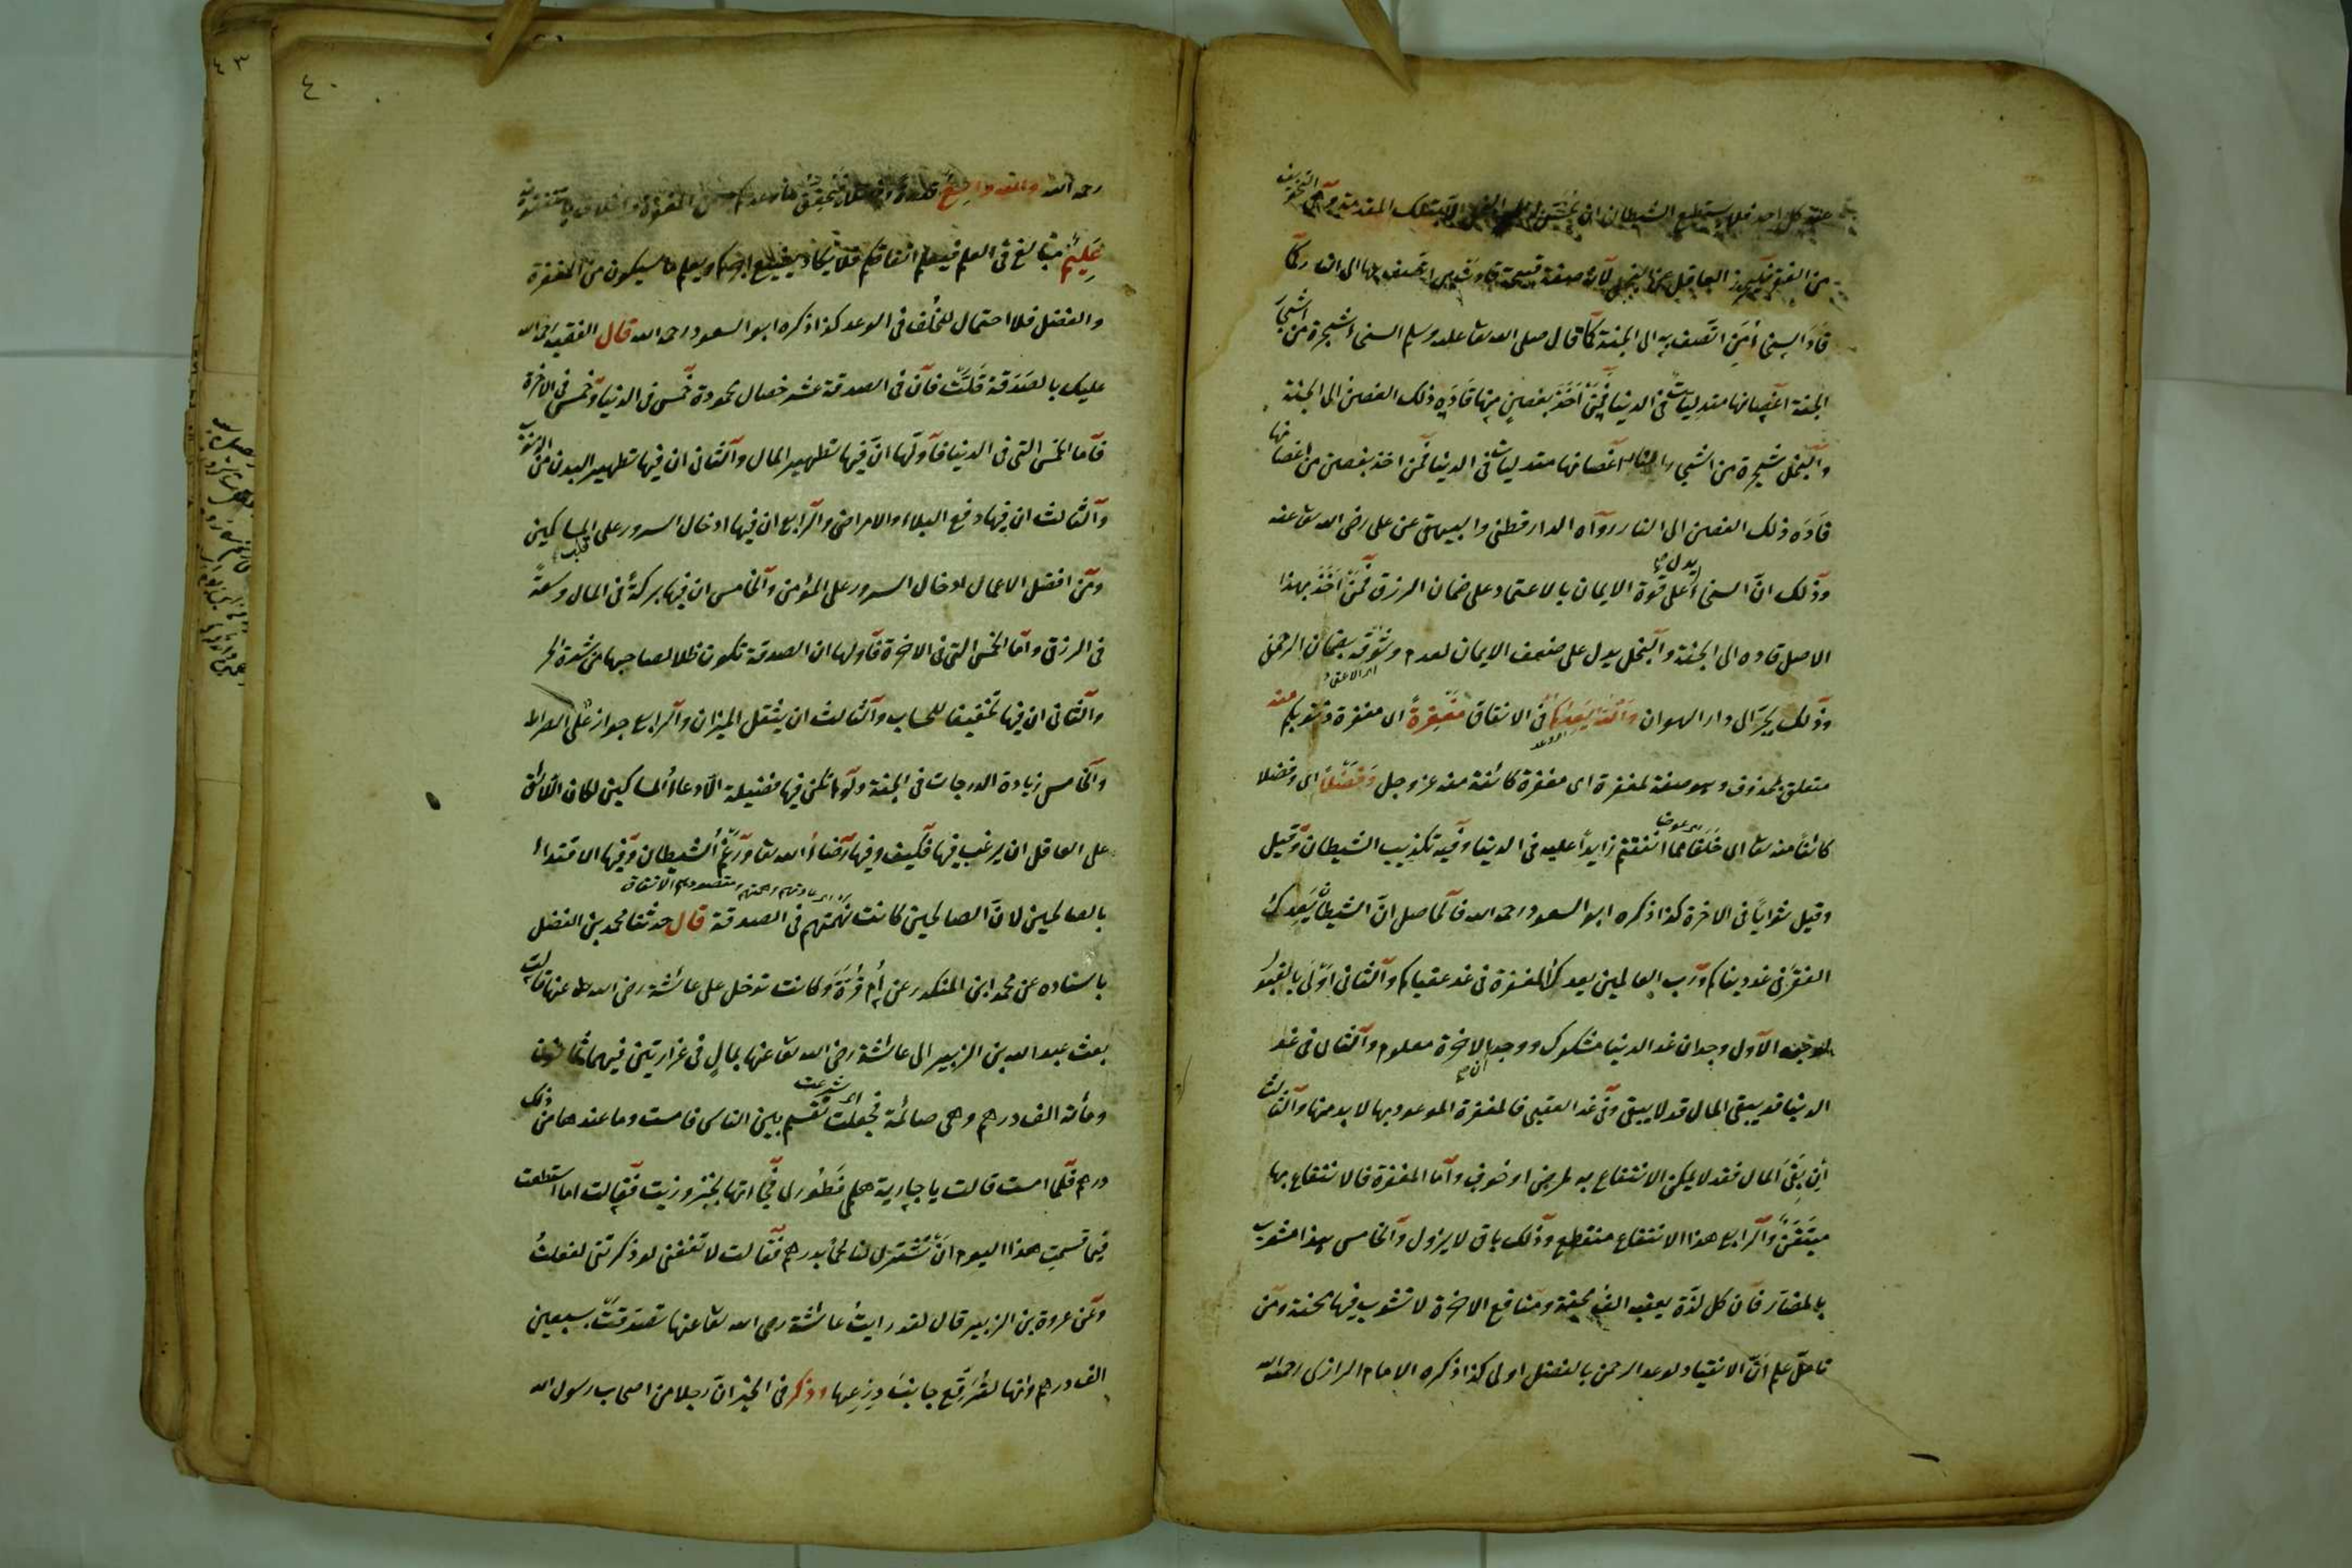 عند كل احد فلا يستطيع الشيطان ان يحسّن له الا بتلك المقدمة وهي التخويف
من الفقر فليحذر العاقل عن البخل لانه صفة قبيحة قاد من اتصف بها الى النار كما
قاد السخى من اتصف به الى الجنة كما قال صلى الله تعا عليه وسلم السخى شجرة من اشجار
الجنة اغصانها متدليات فى الدنيا فمن اخذ بغصن منها قاده ذلك الغصن الى الجنة
والبخل شجرة من اشجار النار اغصانها متدليات فى الدنيا فمن اخذ بغصن من اغصانها
قاده ذلك الغصن الى النار رواه الدارقطنى والبيهقى عن على رضى الله تعا عنه
وذلك انّ السخى يدل على قوة الايمان بالاعتماد على ضمان الرزق فمن اخذ بهذا
الاصل قاده الى الجنة والبخل يدل على ضعف الايمان لعدم وثوقه بضمان الرحمن
وذلك يجر الى دار الهوان والله يعدكم فى الانفاق مغفرةً اى مغفرة ذنوبكم منه
متعلق بمحذوف وهو صفة لمغفرة اى مغفرة كائنة منه عز وجل وفضلا اى وفضلا
كائنا منه تعا اى خلفا مما انفقتم زايداً عليه فى الدنيا وفيه تكذيب الشيطان وقيل
وقيل ثوابا فى الاخرة كذا ذكره ابو السعود رحمه الله فالحاصل انّ الشيطان يعدكم
الفقر فى غد دينكم ورب العالمين يعدكم المغفرة فى غد عقباكم والثانى اولى بالقبول
الاول وجدان غد الدنيا مشكوك ووجدان الاخرة معلوم والثانى فى غد
الدنيا قد يبقى المال قد لا يبقى وفى غد العقبى فالمغفرة الموعود بها لا بد منها والثالث
ان بقى المال فقد لا يمكن الانتفاع به لمرض او خوف واما المغفرة فالانتفاع بها
متيقن والرابع هذا الانتفاع منقطع وذلك باق لا يزول والخامس هذا مشوب
بالمضار فان كل لذة يعقبه الف محنة ومنافع الاخرة لا تشوب فيها محنة ومن
تأمل علم انّ الانقياد لوعد الرحمن بالفضل اولى كذا ذكره الامام الرازى رحمه الله
٤٠
رحمه الله والله واسع قدرة وفضلا فيحقق ما وعدكم من المغفرة واخلاف ما تنفقونه
عليم مبالغ فى العلم فيعلم انفاقكم فلا يكاد يضيع اجركم ويعلم ما سيكون من المغفرة
والفضل فلا احتمال للخلف فى الوعد كذا ذكره ابو السعود رحمه الله قال الفقيه رحمه الله
عليك بالصدقة قلّت فان فى الصدقة عشر خصال محمودة خمس فى الدنيا وخمس فى الاخرة
فاما الخمس التى فى الدنيا فاولها انّ فيها تطهير المال والثانى ان فيها تطهير البدن من الذنوب
والثالث ان فيها دفع البلاء والامراض والرابع ان فيها ادخال السرور على قلب المساكين
ومن افضل الاعمال ادخال السرور على المؤمن والخامس ان فيها بركة فى المال وسعةً
فى الرزق واما الخمس التى فى الاخرة فاولها ان الصدقة تكون ظلا لصاحبها من شدة الحر
والثانى ان فيها تخفيفا للحساب والثالث ان يثقل الميزان والرابع جواز على الصراط
والخامس زيادة الدرجات فى الجنة ولو لم تكن فيها فضيلة الا دعاء المساكين لكان اللائق
على العاقل ان يرغب فيها فكيف وفيها رضاء الله تعا ورغم الشيطان وفيها الاقتداء
بالصالحين لانّ الصالحين كانت نهمتهم فى الصدقة قال حدثنا محمد بن الفضل
باسناده عن محمد ابن المنكدر عن ام قرة وكانت تدخل على عائشة رضى الله تعا عنها قالت
بعث عبد الله بن الزبير الى عائشة رضى الله تعا عنها بمال فى غرارتين فيهما ثمانون
ومائة الف درهم وهى صائمة فجعلت تقسم بين الناس فامست وما عندها من ذلك
درهم فلما امست قالت يا جارية هلم فطورى فجاءتها بخبز وزيت فقالت اما استطعت
فيما قسمت هذا اليوم ان تشترى لنا لحما بدرهم فقالت لا تعنفنى لو ذكرتنى لفعلت
وعن عروة بن الزبير قال لقد رايت عائشة رضى الله تعا عنها تصدقت بسبعين
الف درهم وانها لترقع جانب درعها وذكر فى الخبر انّ رجلا من اصحاب رسول الله